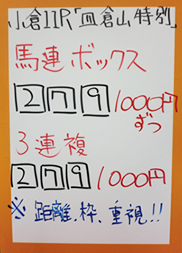 小倉11R「皿倉山特別」
馬連ボックス
2 7 9 1000円
ずつ
3連複
2 7 9 1000円
※距離、枠、重視!!